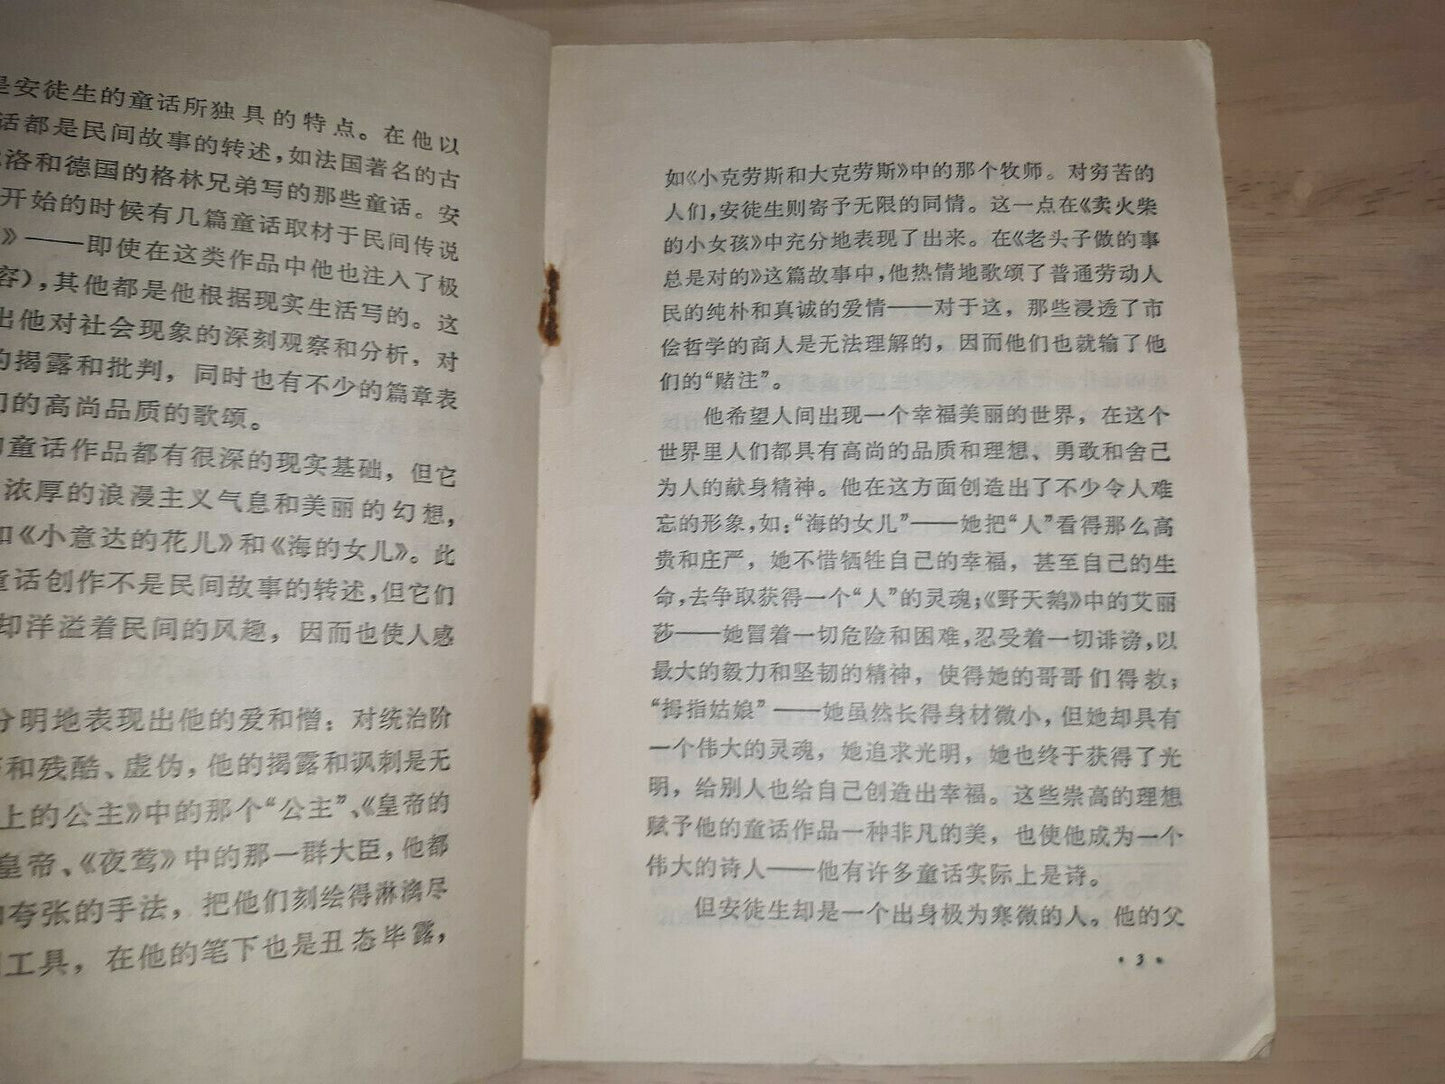 是安徒生的童话所独具的特点。在他以
话都是民间故事的转述，如法国著名的古
洛和德国的格林兄弟写的那些童话。安
开始的时候有几篇童话取材于民间传说
》——即使在这类作品中他也注入了极
容)，其他都是他根据现实生活写的。这
出他对社会现象的深刻观察和分析，对
的揭露和批判，同时也有不少的篇章表
们的高尚品质的歌颂。
童话作品都有很深的现实基础，但它
浓厚的浪漫主义气息和美丽的幻想，
如《小意达的花儿》和《海的女儿》。此
童话创作不是民间故事的转述，但它们
却洋溢着民间的风趣，因而也使人感
分明地表现出他的爱和憎：对统治阶
和残酷、虚伪，他的揭露和讽刺是无
上的公主》中的那个“公主”、《皇帝的
皇帝、《夜莺》中的那一群大臣，他都
夸张的手法，把他们刻绘得淋漓尽
工具，在他的笔下也是丑态毕露，
如《小克劳斯和大克劳斯》中的那个牧师。对穷苦的
人们，安徒生则寄予无限的同情。这一点在《卖火柴
的小女孩》中充分地表现了出来。在《老头子做的事
总是对的》这篇故事中，他热情地歌颂了普通劳动人
民的纯朴和真诚的爱情——对于这，那些浸透了市
侩哲学的商人是无法理解的，因而他们也就输了他
们的“赌注”。
他希望人间出现一个幸福美丽的世界，在这个
世界里人们都具有高尚的品质和理想、勇敢和舍己
为人的献身精神。他在这方面创造出了不少令人难
忘的形象，如：“海的女儿”——她把“人”看得那么高
贵和庄严，她不惜牺牲自己的幸福，甚至自己的生
命，去争取获得一个“人”的灵魂；《野天鹅》中的艾丽
莎——她冒着一切危险和困难，忍受着一切诽谤，以
最大的毅力和坚韧的精神，使得她的哥哥们得救；
“拇指姑娘”——她虽然长得身材微小，但她却具有
一个伟大的灵魂，她追求光明，她也终于获得了光
明，给别人也给自己创造出幸福。这些崇高的理想
赋予他的童话作品一种非凡的美，也使他成为一个
伟大的诗人——他有许多童话实际上是诗。
但安徒生却是一个出身极为寒微的人。他的父
• 3 •